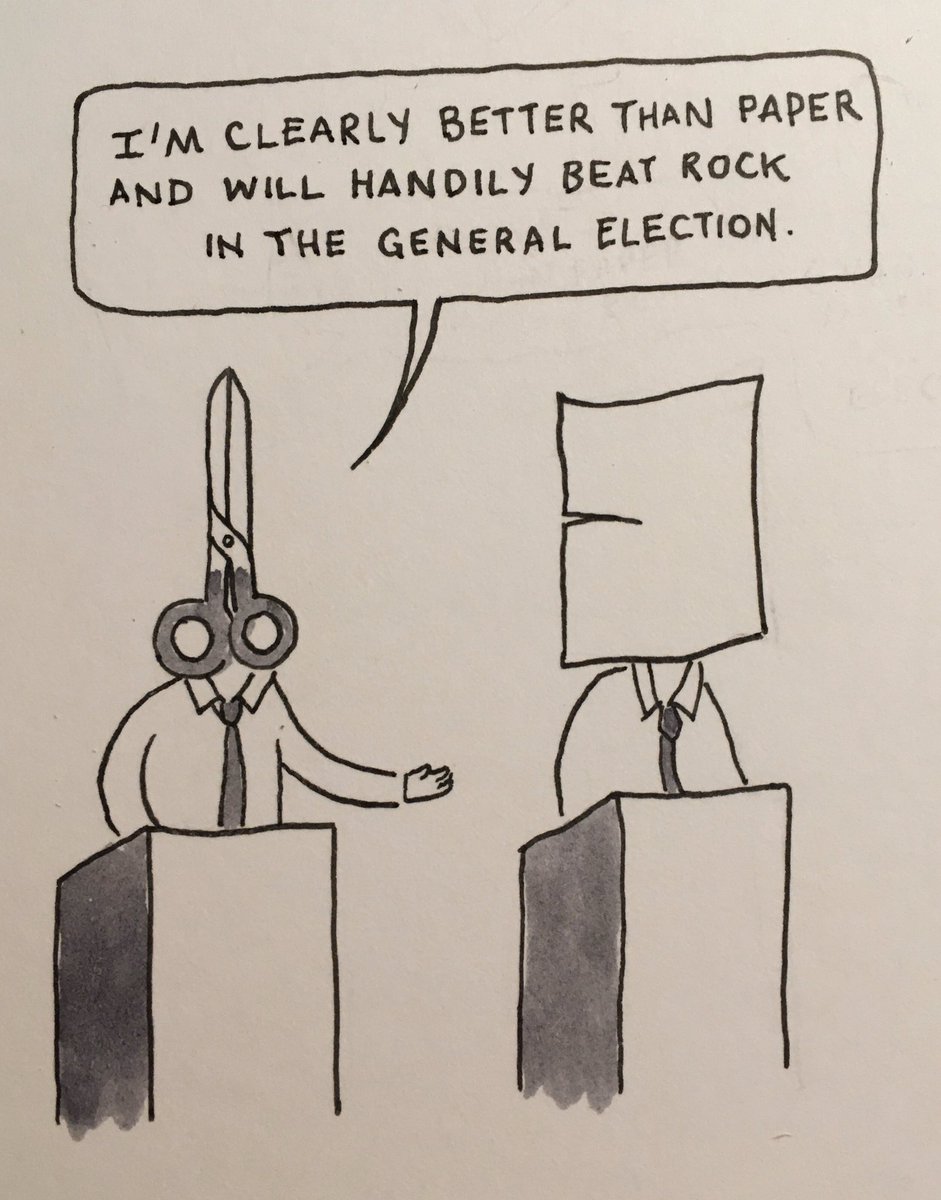 I'M CLEARLY BETTER THAN PAPER
AND WILL HANDILY BEAT ROCK
IN THE GENERAL ELECTION.